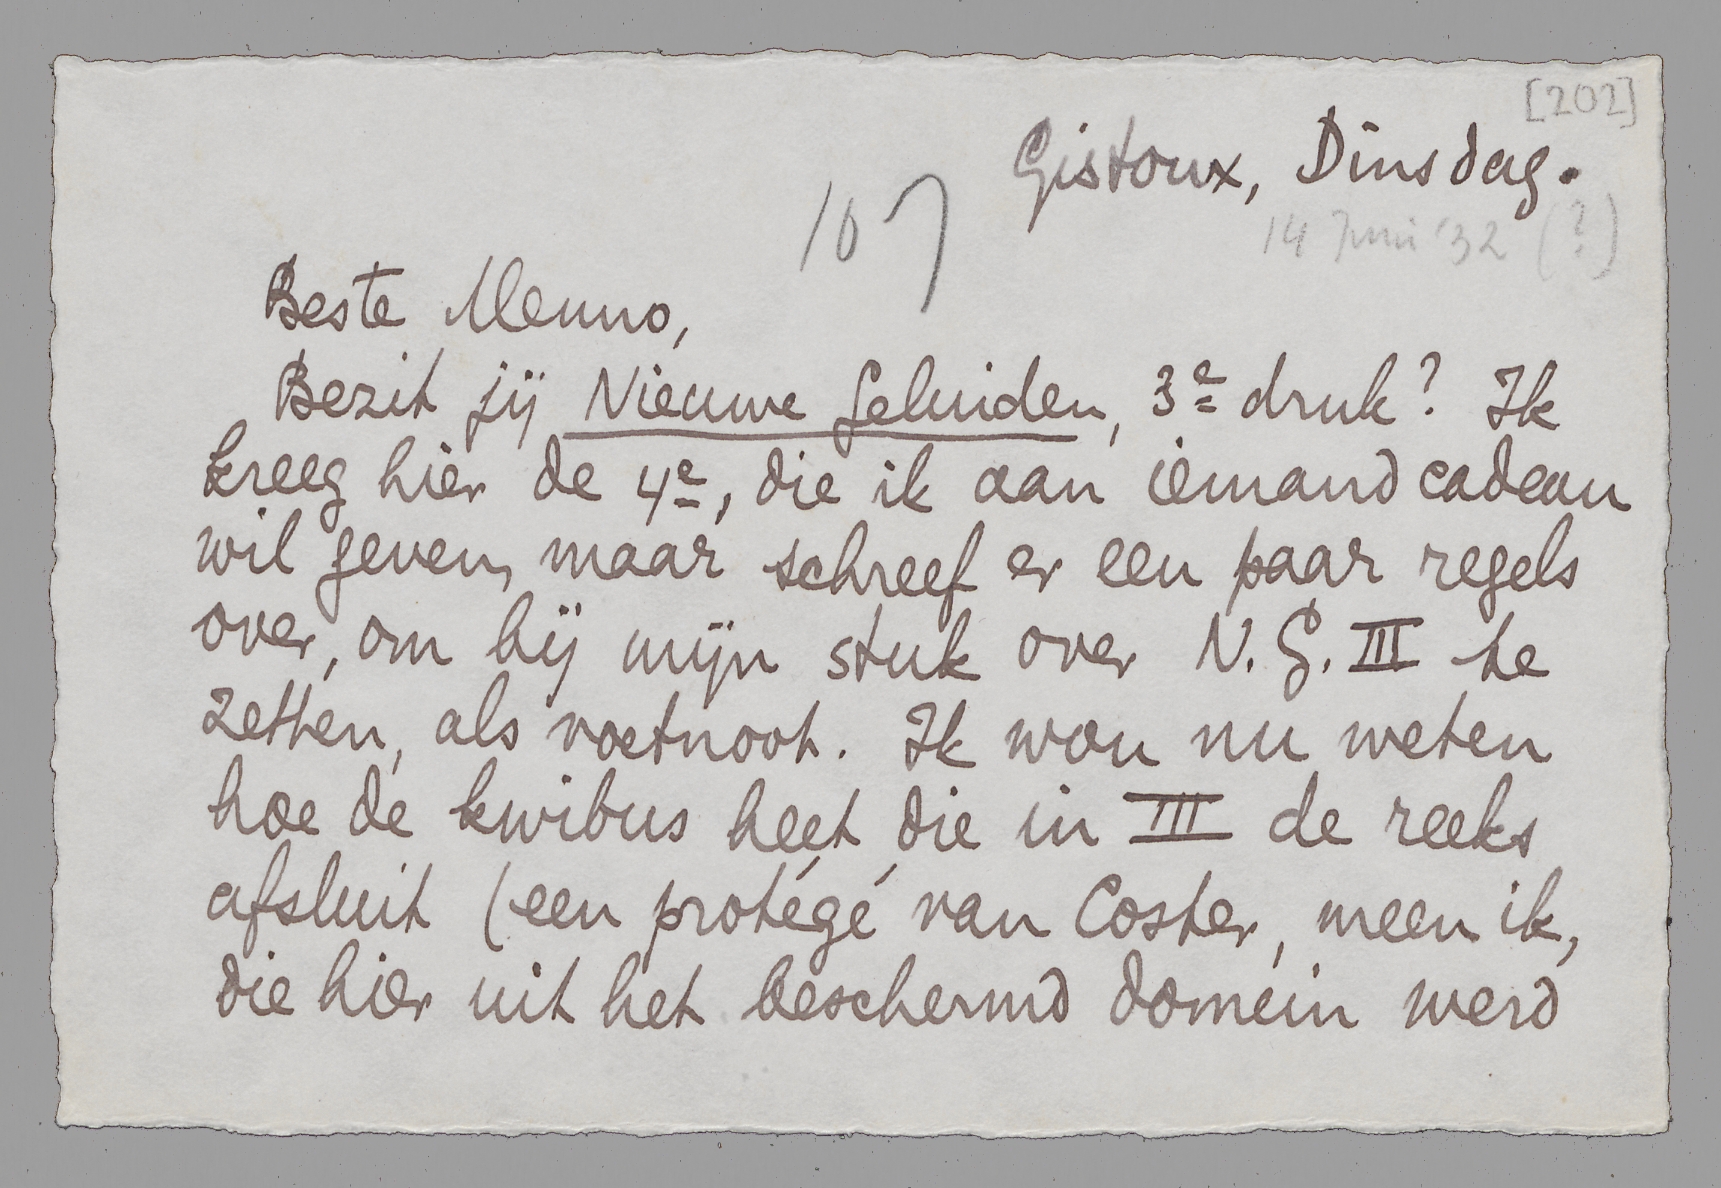 [202]
Gistoux, Dinsdag.
107
14 Juni '32 (?)
Beste Menno,
Bezit jij Nieuwe Geluiden, 3e druk? Ik
kreeg hier de 4e, die ik aan iemand cadeau
wil geven, maar schreef er een paar regels
over, om bij mijn stuk over N.G. III te
zetten, als voetnoot. Ik wou nu weten
hoe de kwibus heet die in III de reeks
afsluit (een protégé van Coster, meen ik,
die hier uit het beschermd domein werd